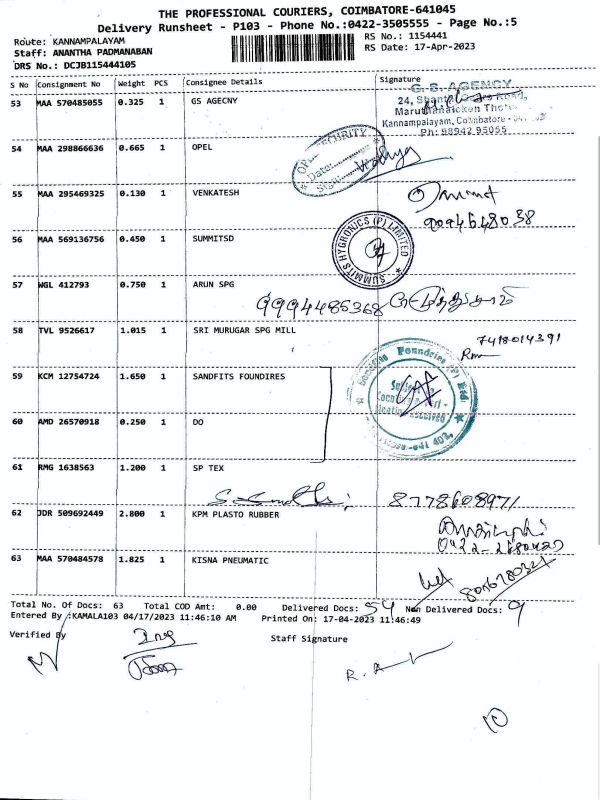 THE PROFESSIONAL COURIERS, COIMBATORE-641045
Delivery Runsheet - P103 - Phone No.:0422-3505555 - Page No.:5
Route: KANNAMPALAYAM
RS No.: 1154441
Staff: ANANTHA PADMANABAN
RS Date: 17-Apr-2023
DRS No.: DCJB115444105
S No Consignment No Weight PCS Consignee Details Signature
53 MAA 570485055 0.325 1 GS AGECNY
G. S. AGENCY
24,
Kannampalayam, Coimbatore -
Ph: 98942 95055
54 MAA 298866636 0.665 1 OPEL
SECURITY
Date:
Sign:
55 MAA 295469325 0.130 1 VENKATESH
9094648038
56 MAA 569136756 0.450 1 SUMMITSD
SUMMITS HYGRONICS (P) LIMITED
57 WGL 412793 0.750 1 ARUN SPG
9994486368
58 TVL 9526617 1.015 1 SRI MURUGAR SPG MILL
7418014391
59 KCM 12754724 1.650 1 SANDFITS FOUNDIRES
Foundries (P) Ltd
60 AMD 26570918 0.250 1 DO
61 RMG 1638563 1.200 1 SP TEX
8778608971
62 JDR 509692449 2.800 1 KPM PLASTO RUBBER
63 MAA 570484578 1.825 1 KISNA PNEUMATIC
Total No. Of Docs: 63 Total COD Amt: 0.00 Delivered Docs: 54 Non Delivered Docs: 9
Entered By :KAMALA103 04/17/2023 11:46:10 AM Printed On: 17-04-2023 11:46:49
Verified By
Staff Signature
10